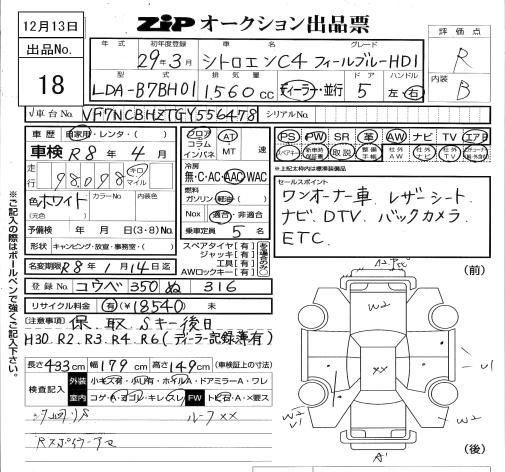 12月13日
ZiP オークション出品票
評価点
R
内装
B
出品No.
18
年式 初年度登録 車名 グレード
29年3月 シトロエンC4 フィールブルーHDI
型式 排気量 ドア ハンドル
LDA-B7BH01 1,560cc ディーラー・並行 5 左・右
車台No. VF7NCBHZTGY556478 シリアルNo.
車歴 自家用・レンタ・( )
車検 R8年4月
走行 98,098 キロ マイル
色 ホワイト カラーNo.
(元色)
予備検 年 月 日 (3・8) No.
形状 キャンピング・放宣・事務室・( )
フロア コラム インパネ
AT MT 速
冷房
無・C・AC・AAC・WAC
燃料
ガソリン・軽油・( )
Nox 適合・非適合
乗車定員 5名
PS PW SR 革 AW ナビ TV エアB
スペアキー 新車時保証書 取説 整備手帳 社外AW 社外ナビ 社外TV
※上記太枠内は標準装備品
セールスポイント
ワンオーナー車、レザーシート、
ナビ、DTV、バックカメラ、
ETC、
スペアタイヤ【有】
ジャッキ【有】
工具【有】
AWロックキー【有】
名変期限 R8年1月14日迄
登録No. コウベ 350 ぬ 316
リサイクル料金 有 (¥18540) 未
(注意事項) 保、取、Sキー後日
H30、R2、R3、R4、R6(ディーラー記録簿有)
長さ433cm 幅179cm 高さ149cm (車検証上の寸法)
検査記入 外装 小キズ有・小凹有・ホイルA・ドアミラーA・ワレ
室内 コゲ・穴・ヨゴレ・キレ・スレ FW トビ石・A・×要ス
ルーフ××
Rスポイラーアセ
※ご記入の際はボールペンで強くご記入下さい。
(前)
W2
××
U1
W2
U1
W2
A1
(後)